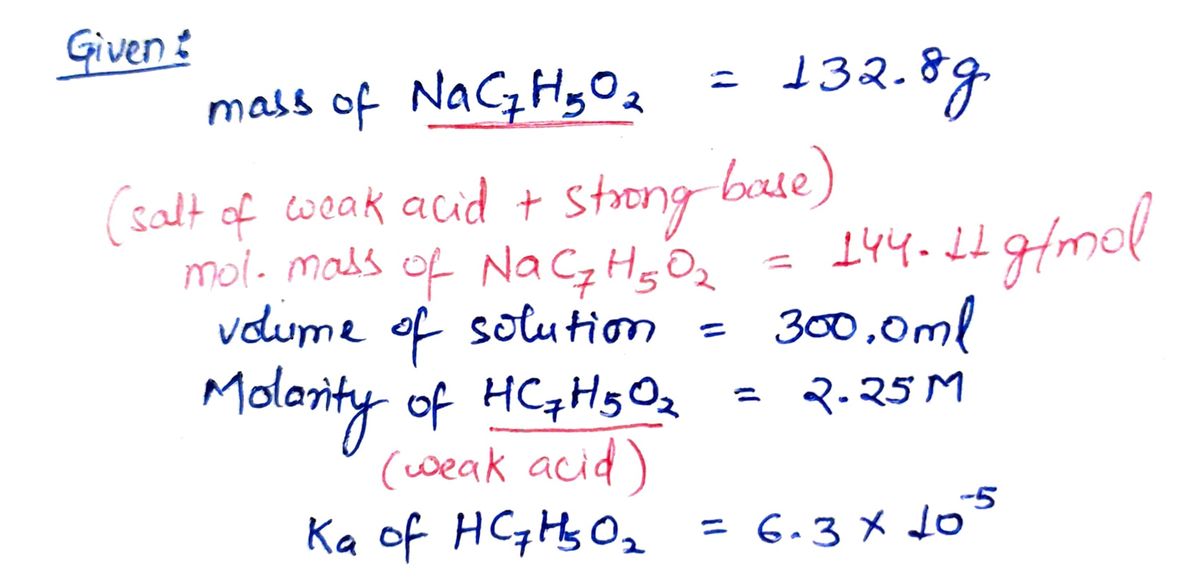 Given :
mass of NaC₇H₅O₂ = 132.8g
(salt of weak acid + strong base)
mol. mass of NaC₇H₅O₂ = 144.11 g/mol
volume of solution = 300.0ml
Molarity of HC₇H₅O₂ = 2.25 M
(weak acid)
Ka of HC₇H₅O₂ = 6.3 × 10⁻⁵